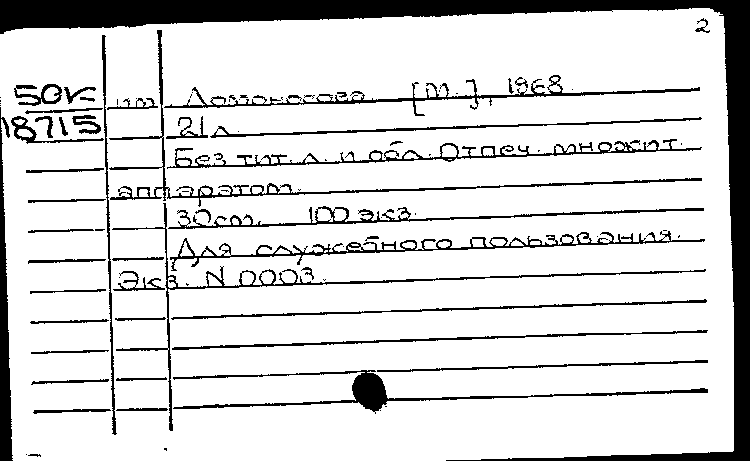 2
50к
18715
им. Ломоносова [М.], 1968.
21 л.
Без тит. л. и обл. Отпеч. множит.
аппаратом.
30 см. 100 экз.
Для служебного пользования.
Экз. N 0003.